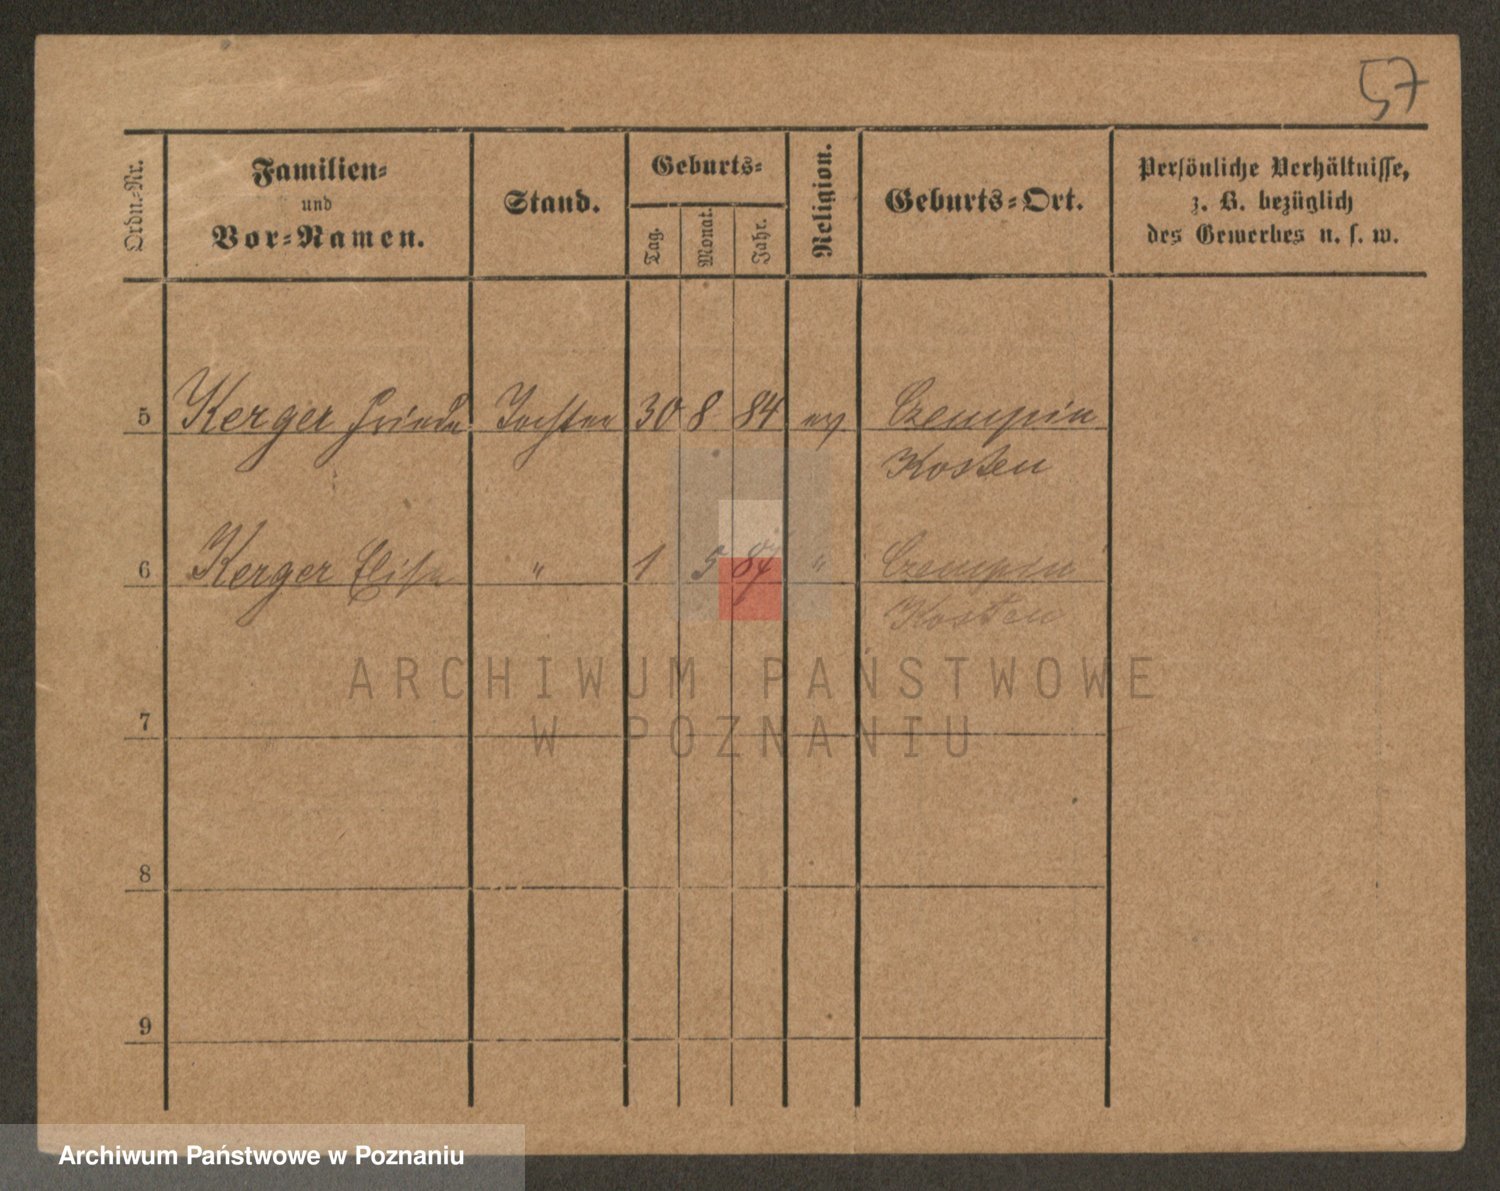 57
Ordn.-Nr.
Familien-
und
Vor-Namen.
Stand.
Geburts-
Tag.
Monat.
Jahr.
Religion.
Geburts-Ort.
Persönliche Verhältnisse,
z. B. bezüglich
des Gewerbes u. s. w.
5 Kerger Frieda Tochter 30 8 84 ev Czempin
Kosten
6 Kerger Elise " 1 5 87 " Czempin
Kosten
7
8
9
ARCHIWUM PAŃSTWOWE
W POZNANIU
Archiwum Państwowe w Poznaniu